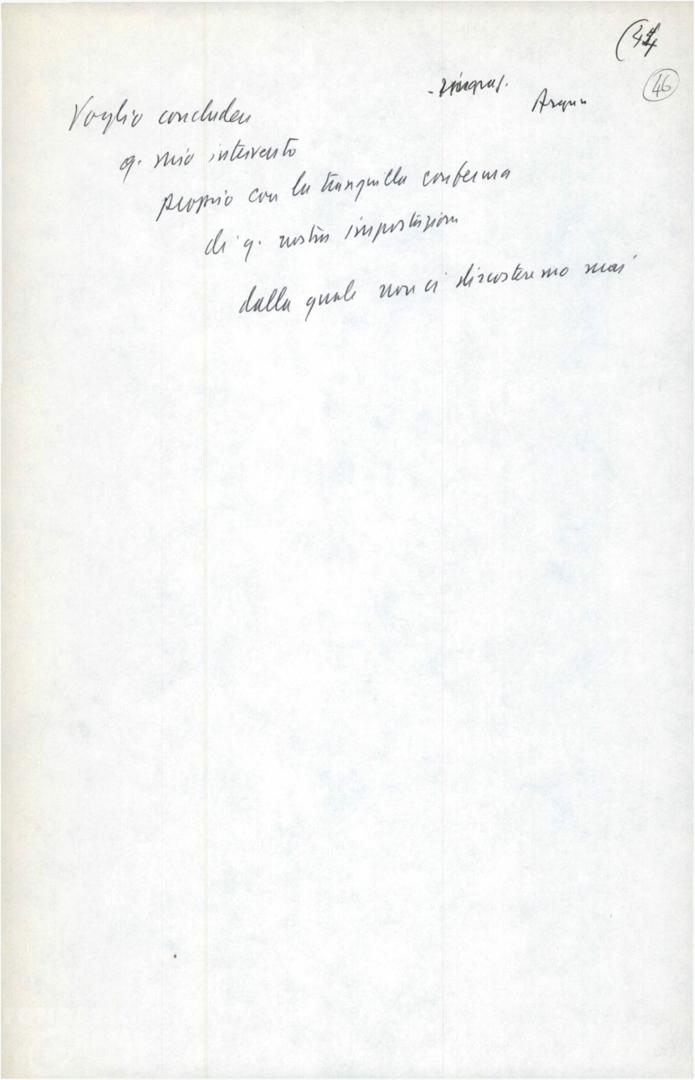 (44
46
- ringraz.
Voglio concludere
q. mio intervento
proprio con la tranquilla conferma
di q. nostra impostazione
dalla quale non ci discosteremo mai